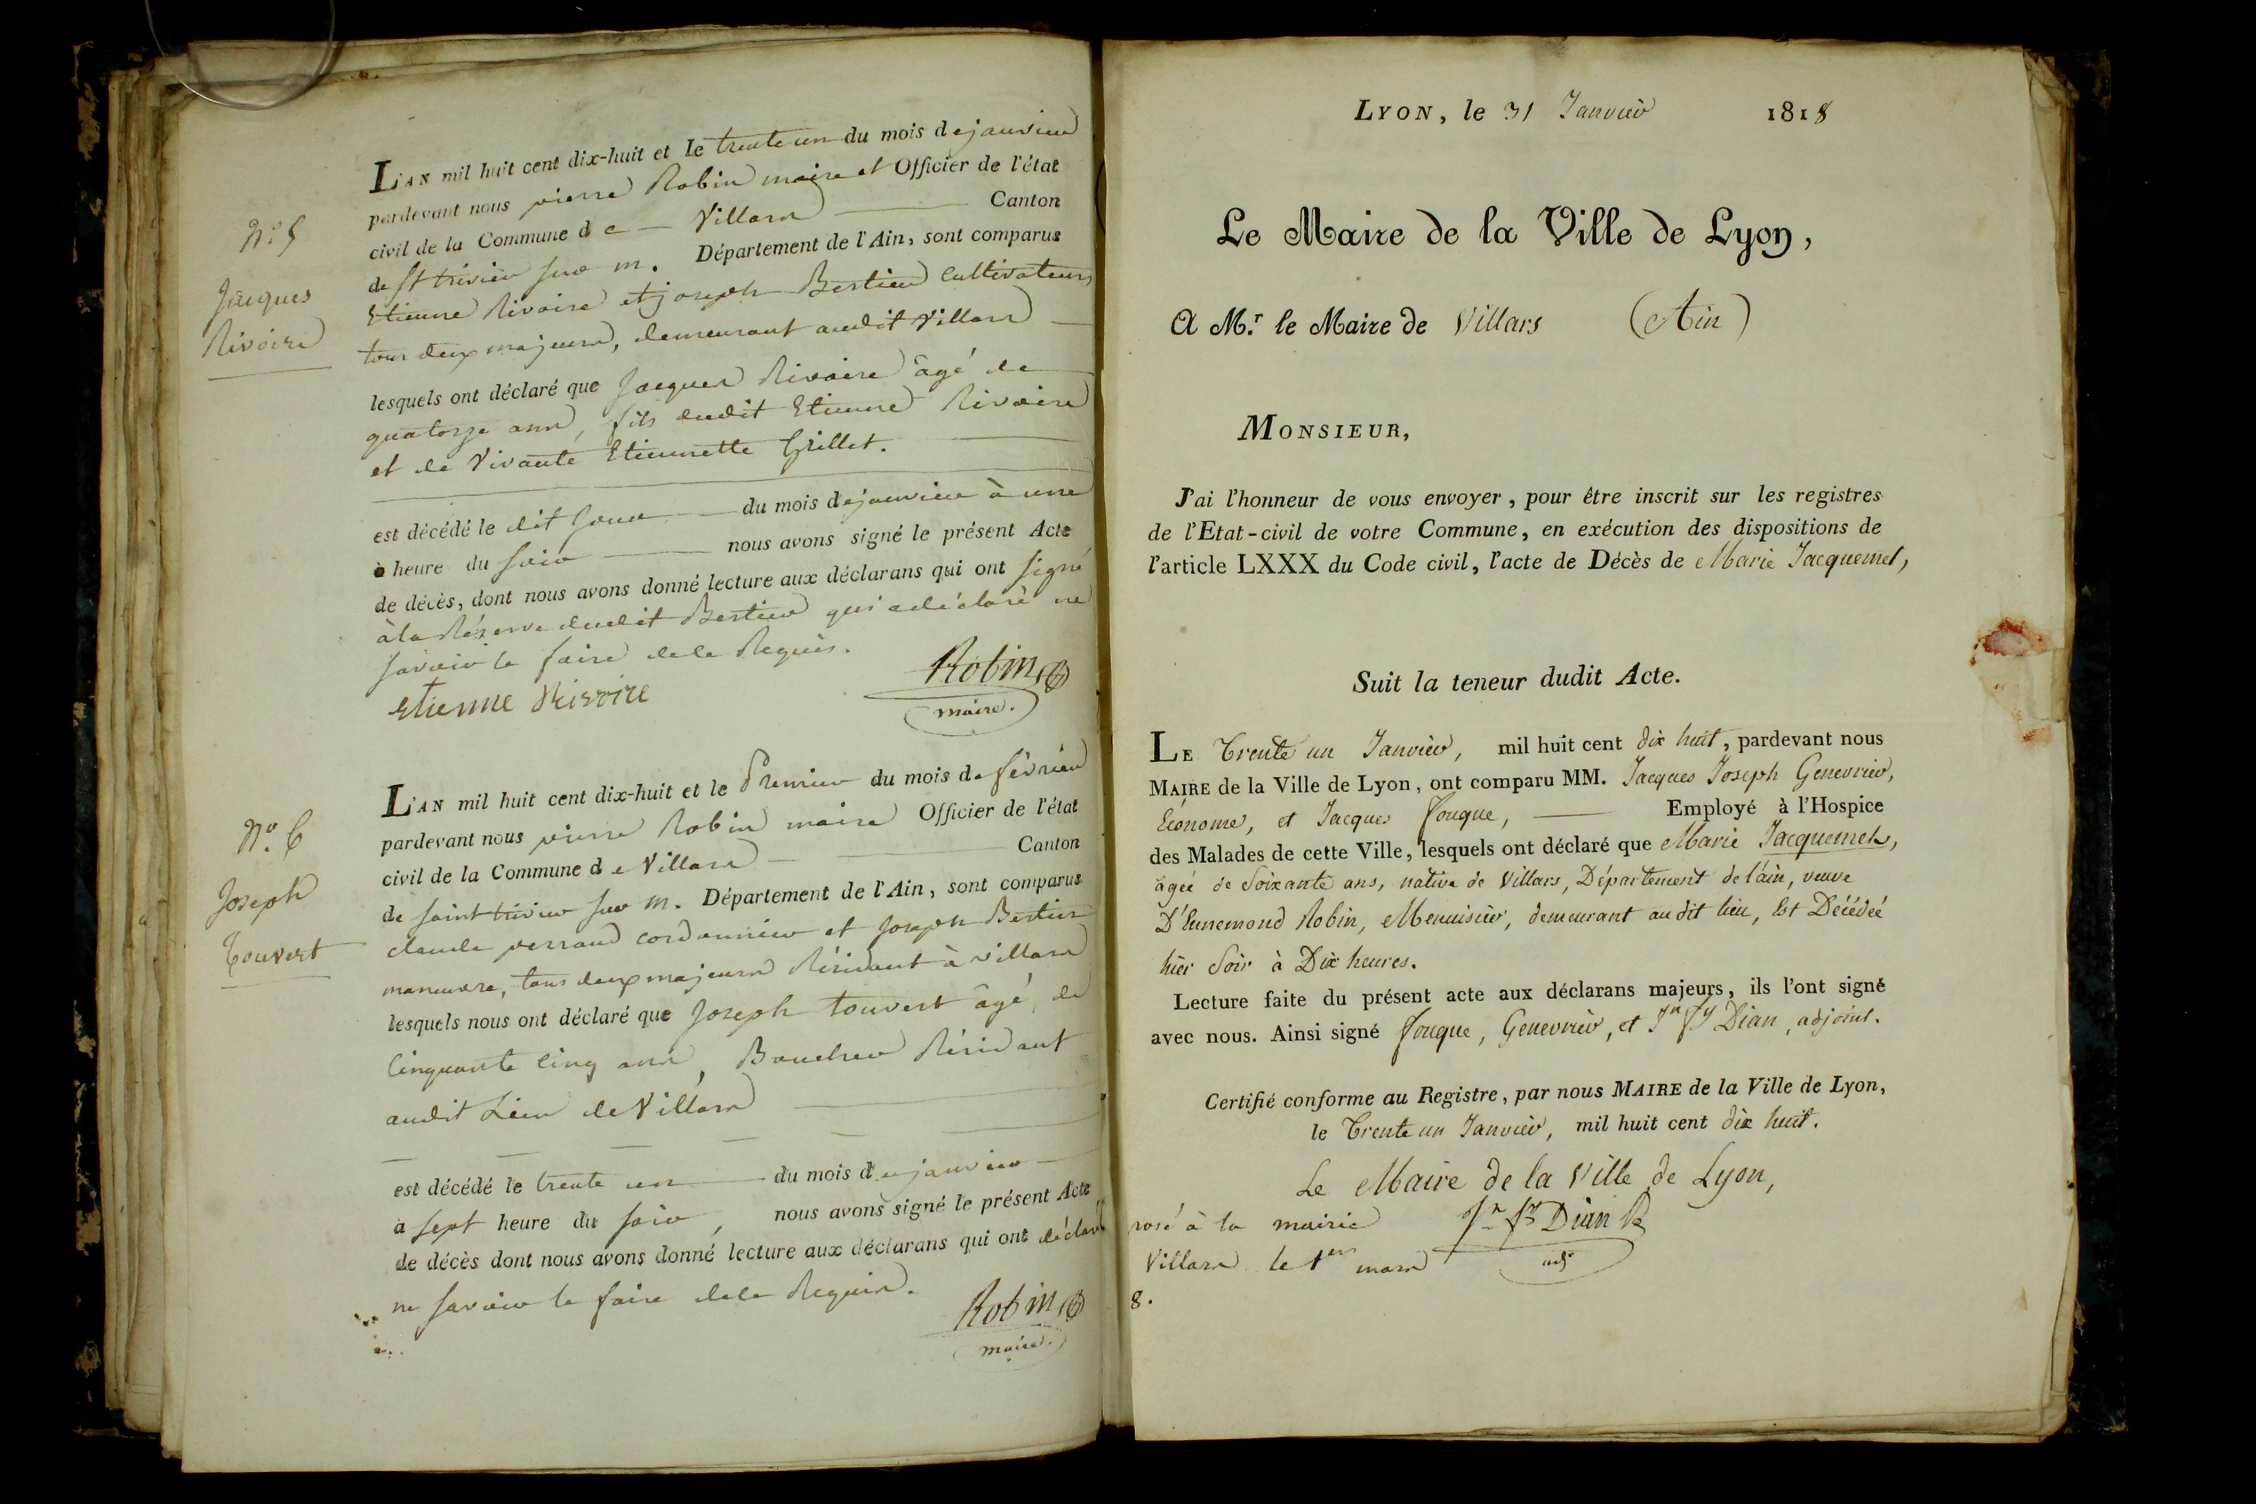 N.o 5
Jacques
Rivoire
L'AN mil huit cent dix-huit et le trente un du mois de janvier
pardevant nous pierre Robin maire et Officier de l'état
civil de la Commune de Villars Canton
de St trivier sur m. Département de l'Ain, sont comparus
Etienne Rivoire et joseph Bertier cultivateurs
tous deux majeurs, demeurant audit Villars
lesquels ont déclaré que Jacques Rivoire âgé de
quatorze ans, fils dudit Etienne Rivoire
et de vivante Etiennette Grillet.
est décédé le dit jour du mois de janvier à une
à heure du soir nous avons signé le présent Acte
de décès, dont nous avons donné lecture aux déclarans qui ont signé
à la Réserve dudit Bertier qui a déclaré ne
savoir le faire de ce Requis.
Etienne Rivoire
Robin
maire.
N.o 6
Joseph
Touvert
L'AN mil huit cent dix-huit et le Premier du mois de février
pardevant nous pierre Robin maire Officier de l'état
civil de la Commune de Villars Canton
de saint trivier sur m. Département de l'Ain, sont comparus
claude perraud cordonnier et Joseph Bertier
maneuvre, tous deux majeurs Résidant à villars
lesquels nous ont déclaré que Joseph touvert âgé de
Cinquante cinq ans, Boucher Résidant
audit Lieu de Villars
est décédé le trente un du mois de janvier
à sept heure du soir, nous avons signé le présent Acte
de décès dont nous avons donné lecture aux déclarans qui ont déclaré
ne savoir le faire de ce Requis.
Robin
maire.
LYON, le 31 Janvier 1818
Le Maire de la Ville de Lyon,
A M.r le Maire de Villars (Ain)
MONSIEUR,
J'ai l'honneur de vous envoyer, pour être inscrit sur les registres
de l'Etat-civil de votre Commune, en exécution des dispositions de
l'article LXXX du Code civil, l'acte de Décès de Marie Jacquemet,
Suit la teneur dudit Acte.
LE Trente un Janvier, mil huit cent dix huit, pardevant nous
MAIRE de la Ville de Lyon, ont comparu MM. Jacques Joseph Genevrier,
Econome, et Jacques Fouque, Employé à l'Hospice
des Malades de cette Ville, lesquels ont déclaré que Marie Jacquemet,
âgée de Soixante ans, native de Villars, Département de l'ain, veuve
D'Ennemond Robin, Menuisier, demeurant au dit lieu, Est Décédée
hier Soir à Dix heures.
Lecture faite du présent acte aux déclarans majeurs, ils l'ont signé
avec nous. Ainsi signé Fouque, Genevrier, et Jn Fs Dian, adjoint.
Certifié conforme au Registre, par nous MAIRE de la Ville de Lyon,
le Trente un Janvier, mil huit cent dix huit.
Le Maire de la Ville de Lyon,
Jn Fs Dian
adj
posé à la mairie
Villars le 1er mars
8.